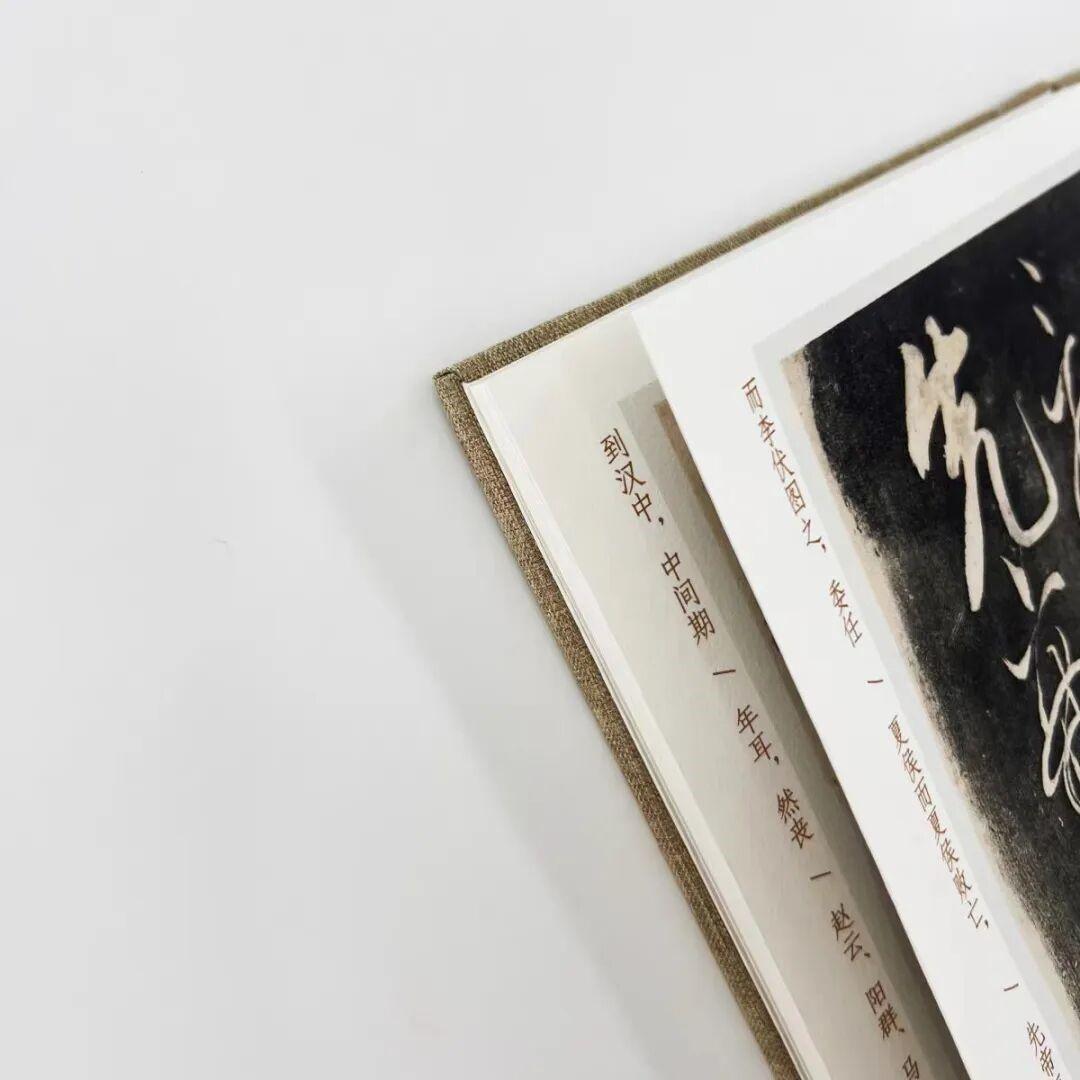 先
而李伏图之，委任 | 夏侯而夏侯败亡， | 先帝
到汉中，中间期 | 年耳，然丧 | 赵云、阳群、马